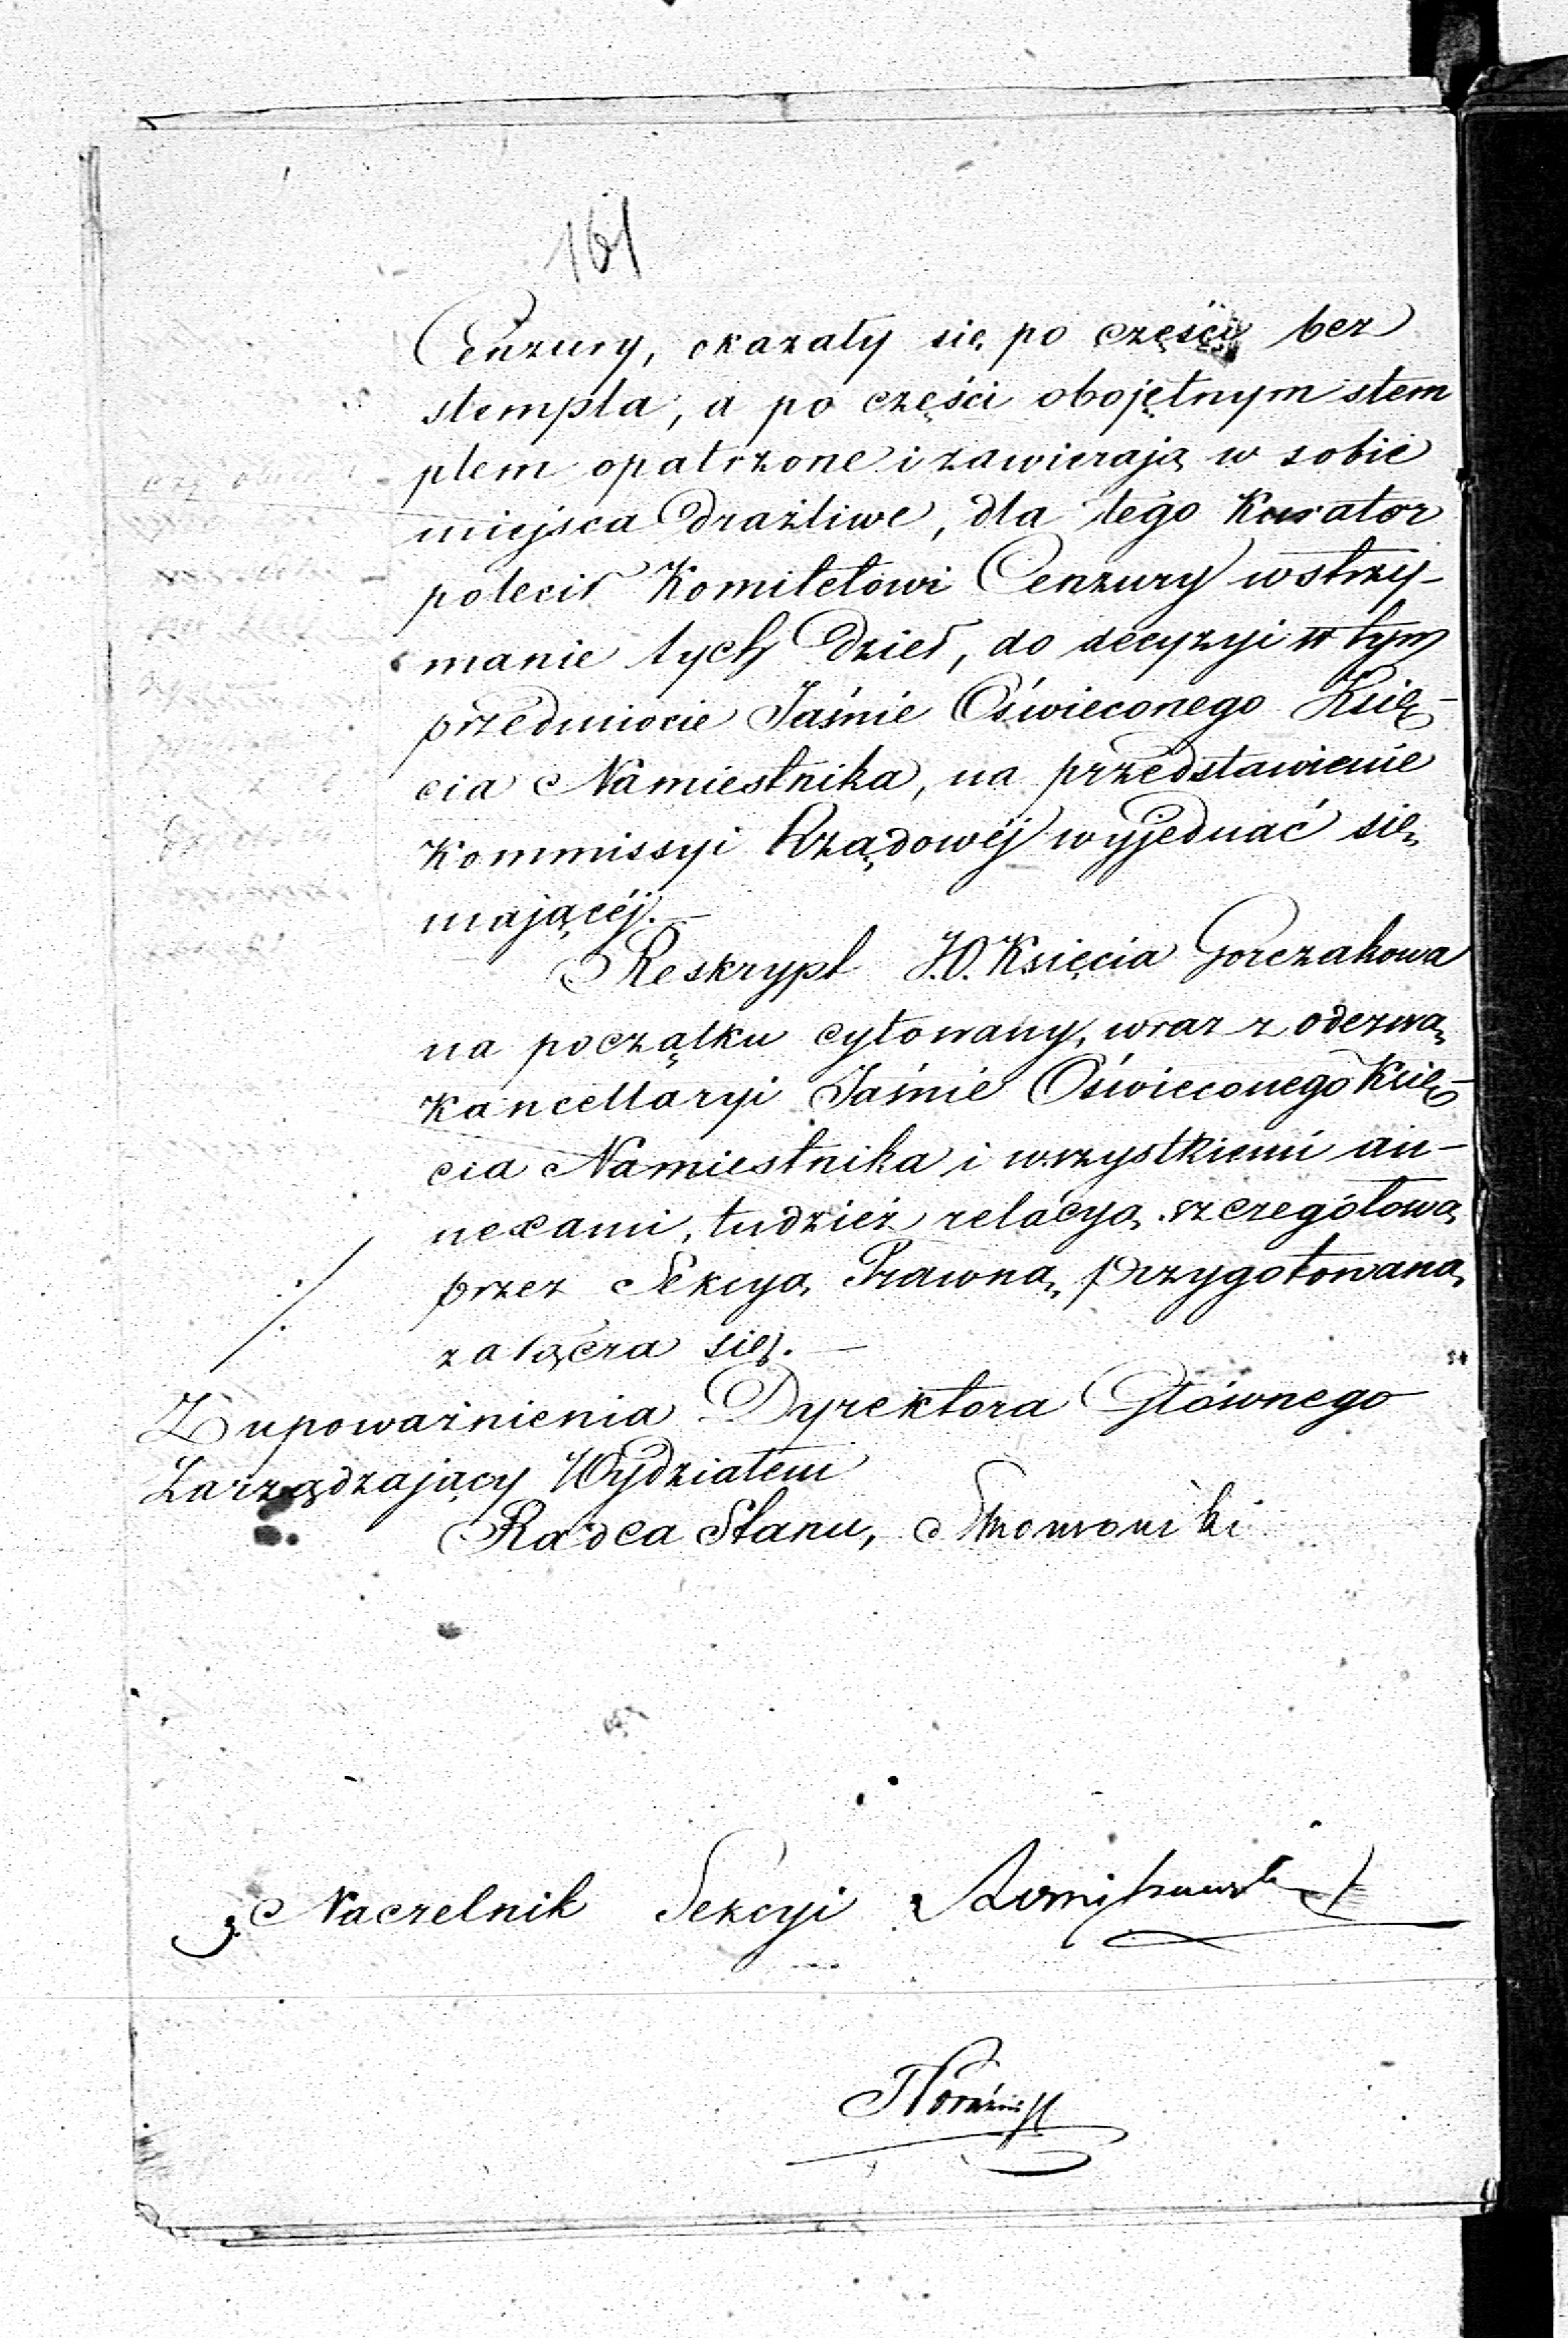 161
Cenzury, okazały się po części bez
stempla, a po części obojętnym stem
plem opatrzone i zawierają w sobie
miejsca drażliwe, dla tego Kurator
polecił Komitetowi Cenzury wstrzy-
manie tych Dzieł, do decyzyi w tym
przedmiocie Jaśnie Oświeconego Księ-
cia Namiestnika, na przedstawienie
Kommissyi Rządowéj wyjednać się
mającéj.—
Reskrypt J.O. Księcia Gorczakowa
na początku cytowany, wraz z odezwą
Kancellaryi Jaśnie Oświeconego Księ-
cia Namiestnika i wszystkiemi an-
nexami, tudzież relacyą szczegółową
przez Sekcyą Prawną przygotowaną
załącza się.—
Z upoważnienia Dyrektora Głównego
Zarządzający Wydziałem
Radca Stanu,
Naczelnik Sekcyi